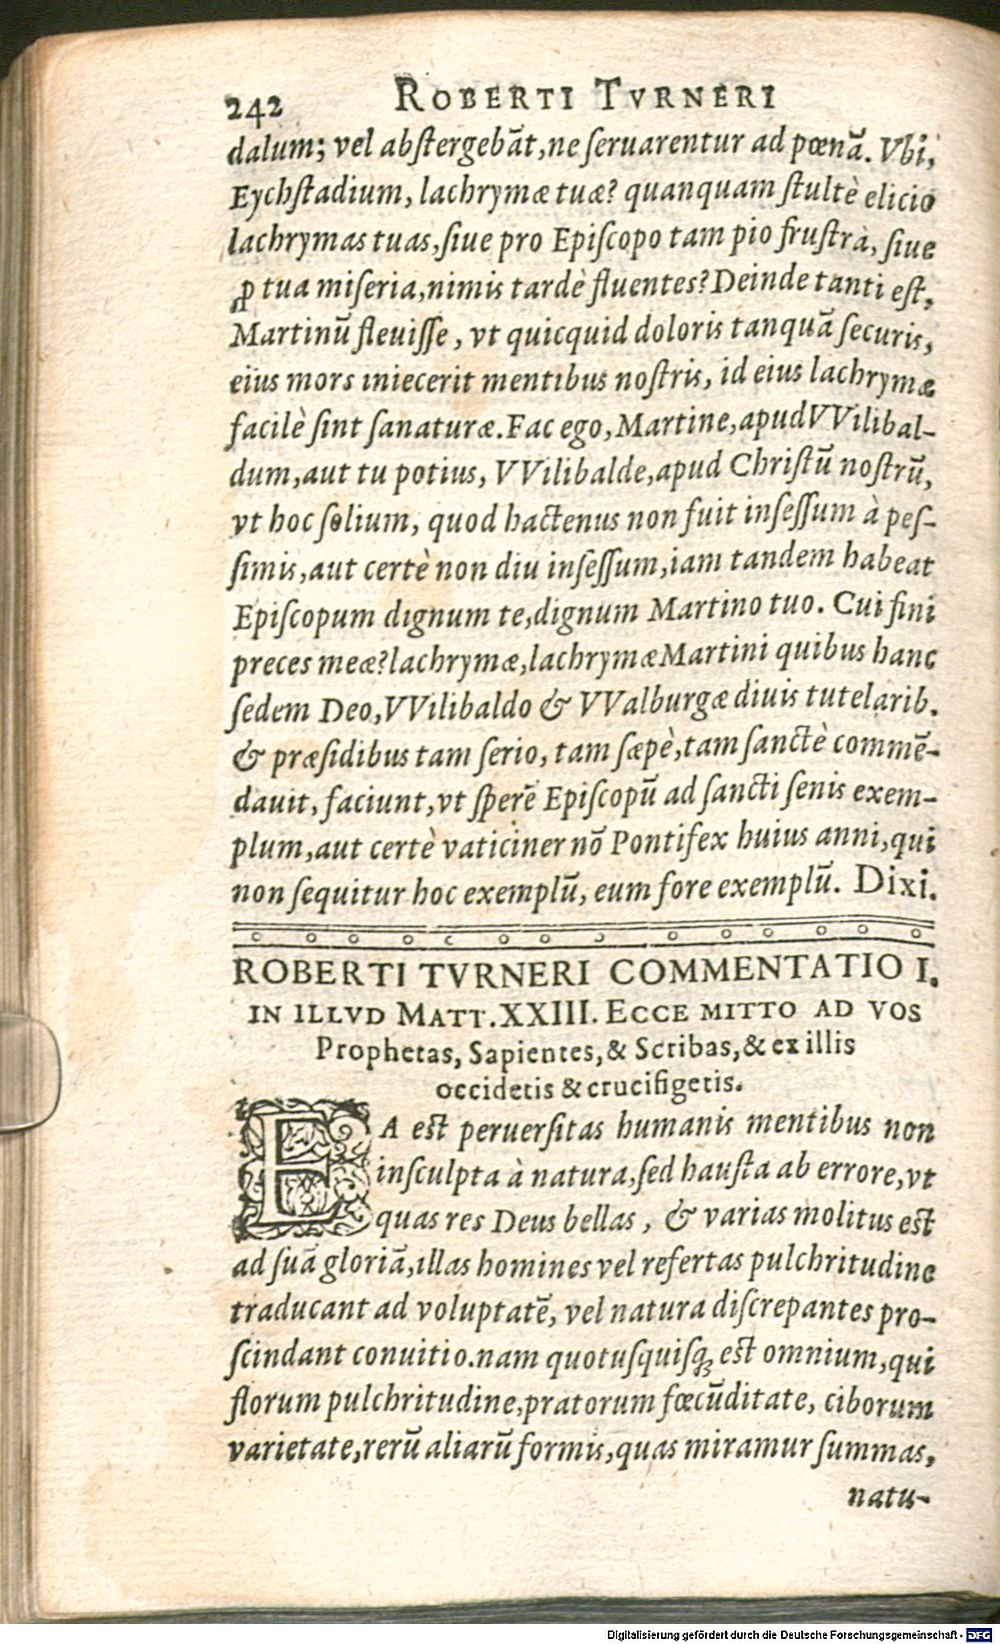 242 ROBERTI TVRNERI
dalum; vel abſtergebāt, ne ſeruarentur ad pœnā. Vbi,
Eychſtadium, lachrymæ tuæ? quanquam ſtultè elicio
lachrymas tuas, ſiue pro Epiſcopo tam pio fruſtrà, ſiue
ꝓ tua miſeria, nimis tardè fluentes? Deinde tanti eſt,
Martinū fleuiſſe, vt quicquid doloris tanquā ſecuris,
eius mors iniecerit mentibus noſtris, id eius lachrymæ
facilè ſint ſanaturæ. Fac ego, Martine, apud VVilibal-
dum, aut tu potius, VVilibalde, apud Chriſtū noſtrū,
vt hoc ſolium, quod hactenus non fuit inſeſſum à peſ-
ſimis, aut certè non diu inſeſſum, iam tandem habeat
Epiſcopum dignum te, dignum Martino tuo. Cui fini
preces meæ? lachrymæ, lachrymæ Martini quibus hanc
ſedem Deo, VVilibaldo & VValburgæ diuis tutelarib.
& præſidibus tam ſerio, tam ſæpè, tam ſanctè commē-
dauit, faciunt, vt ſperē Epiſcopū ad ſancti ſenis exem-
plum, aut certè vaticiner nō Pontifex huius anni, qui
non ſequitur hoc exemplū, eum fore exemplū. Dixi.
ROBERTI TVRNERI COMMENTATIO I.
IN ILLVD MATT. XXIII. ECCE MITTO AD VOS
Prophetas, Sapientes, & Scribas, & ex illis
occidetis & crucifigetis.
EA eſt peruerſitas humanis mentibus non
inſculpta à natura, ſed hauſta ab errore, vt
quas res Deus bellas, & varias molitus eſt
ad ſuā gloriā, illas homines vel refertas pulchritudine
traducant ad voluptatē, vel natura diſcrepantes pro-
ſcindant conuitio. nam quotuſquiſq; eſt omnium, qui
florum pulchritudine, pratorum fœcūditate, ciborum
varietate, rerū aliarū formis, quas miramur ſummas,
natu-
Digitalisierung gefördert durch die Deutsche Forschungsgemeinschaft - DFG